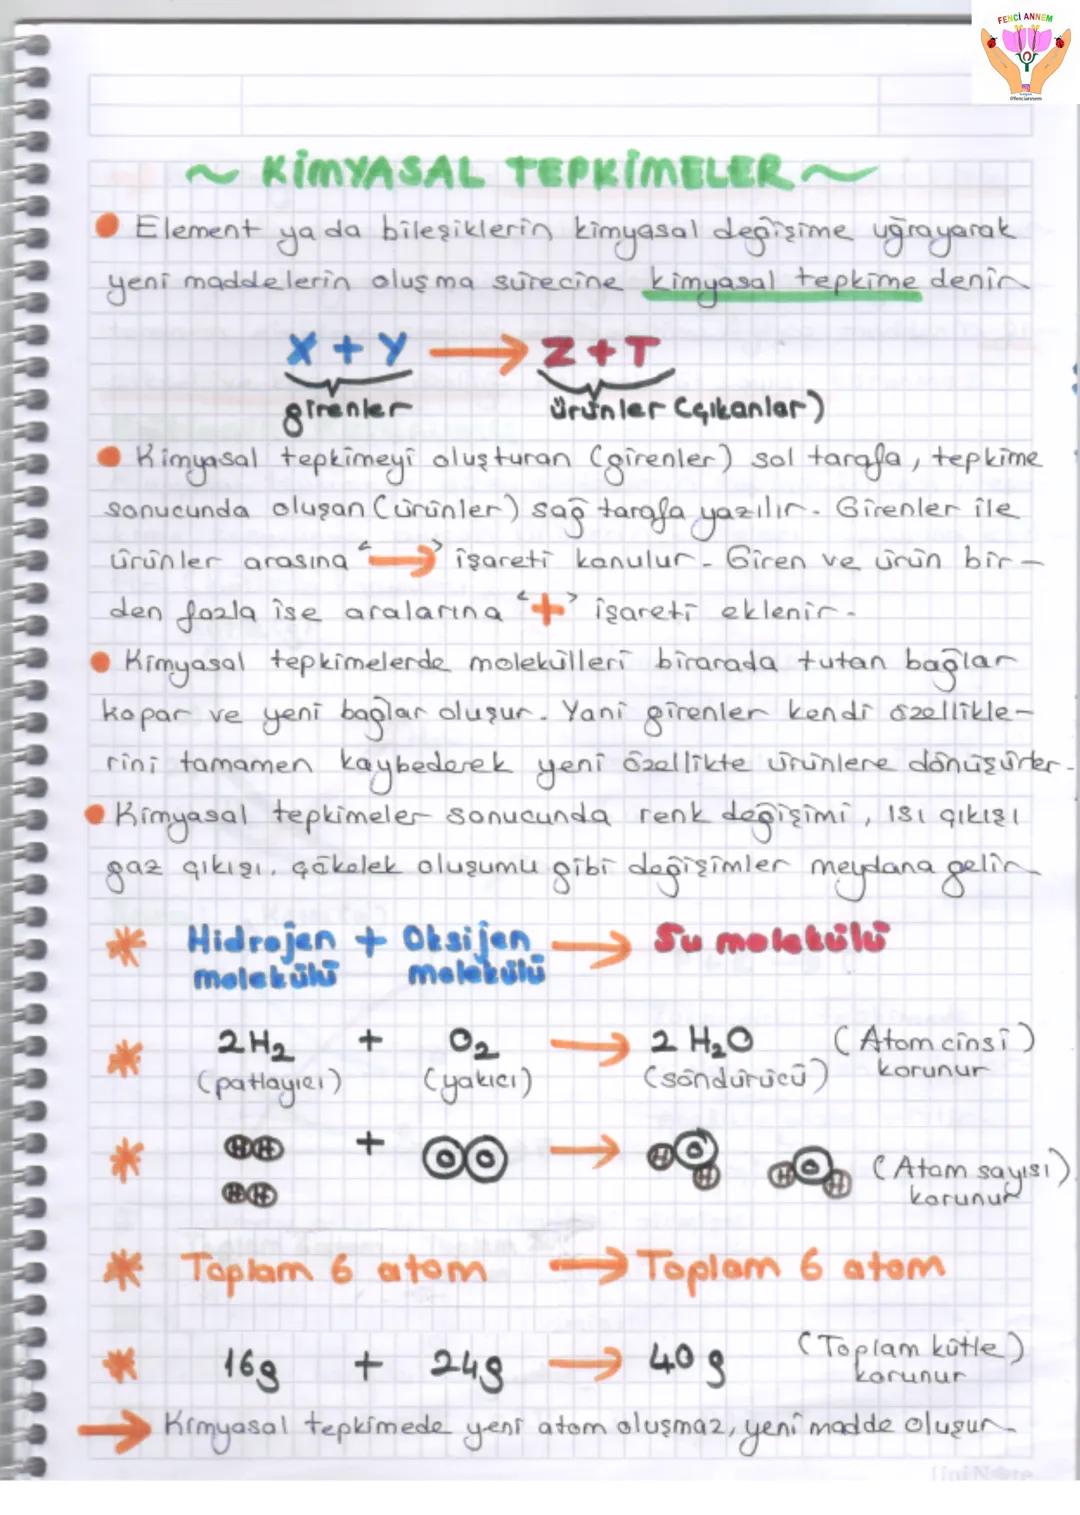 FENCİ ANNEM
@fenciannem
~ KİMYASAL TEPKİMELER ~
Element ya da bileşiklerin kimyasal değişime uğrayarak
yeni maddelerin oluşma sürecine kimyasal tepkime denir
X + Y → Z + T
girenler ürünler (çıkanlar)
Kimyasal tepkimeyi oluşturan (girenler) sol tarafa, tepkime
sonucunda oluşan (ürünler) sağ tarafa yazılır. Girenler ile
ürünler arasına "→" işareti konulur. Giren ve ürün bir-
den fazla ise aralarına "+" işareti eklenir.
Kimyasal tepkimelerde molekülleri birarada tutan bağlar
kopar ve yeni bağlar oluşur. Yani girenler kendi özellikle-
rini tamamen kaybederek yeni özellikte ürünlere dönüşürler.
Kimyasal tepkimeler sonucunda renk değişimi, ısı çıkışı
gaz çıkışı, çökelek oluşumu gibi değişimler meydana gelir
* Hidrojen + Oksijen → Su molekülü
molekülü molekülü
* 2H₂ + O₂ → 2 H₂O (Atom cinsi)
(patlayıcı) (yakıcı) (söndürücü) korunur
* HH + OO → HOH HOH (Atom sayısı)
HH korunur
* Toplam 6 atom → Toplam 6 atom
* 16g + 24g → 40 g (Toplam kütle)
korunur
→ Kimyasal tepkimede yeni atom oluşmaz, yeni madde oluşur.